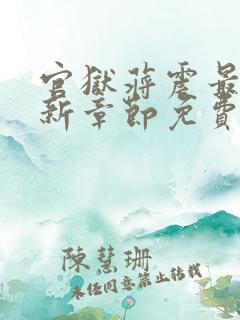 官獄蒋震最
新章節免費
陳慧珊
未经同意禁止转载